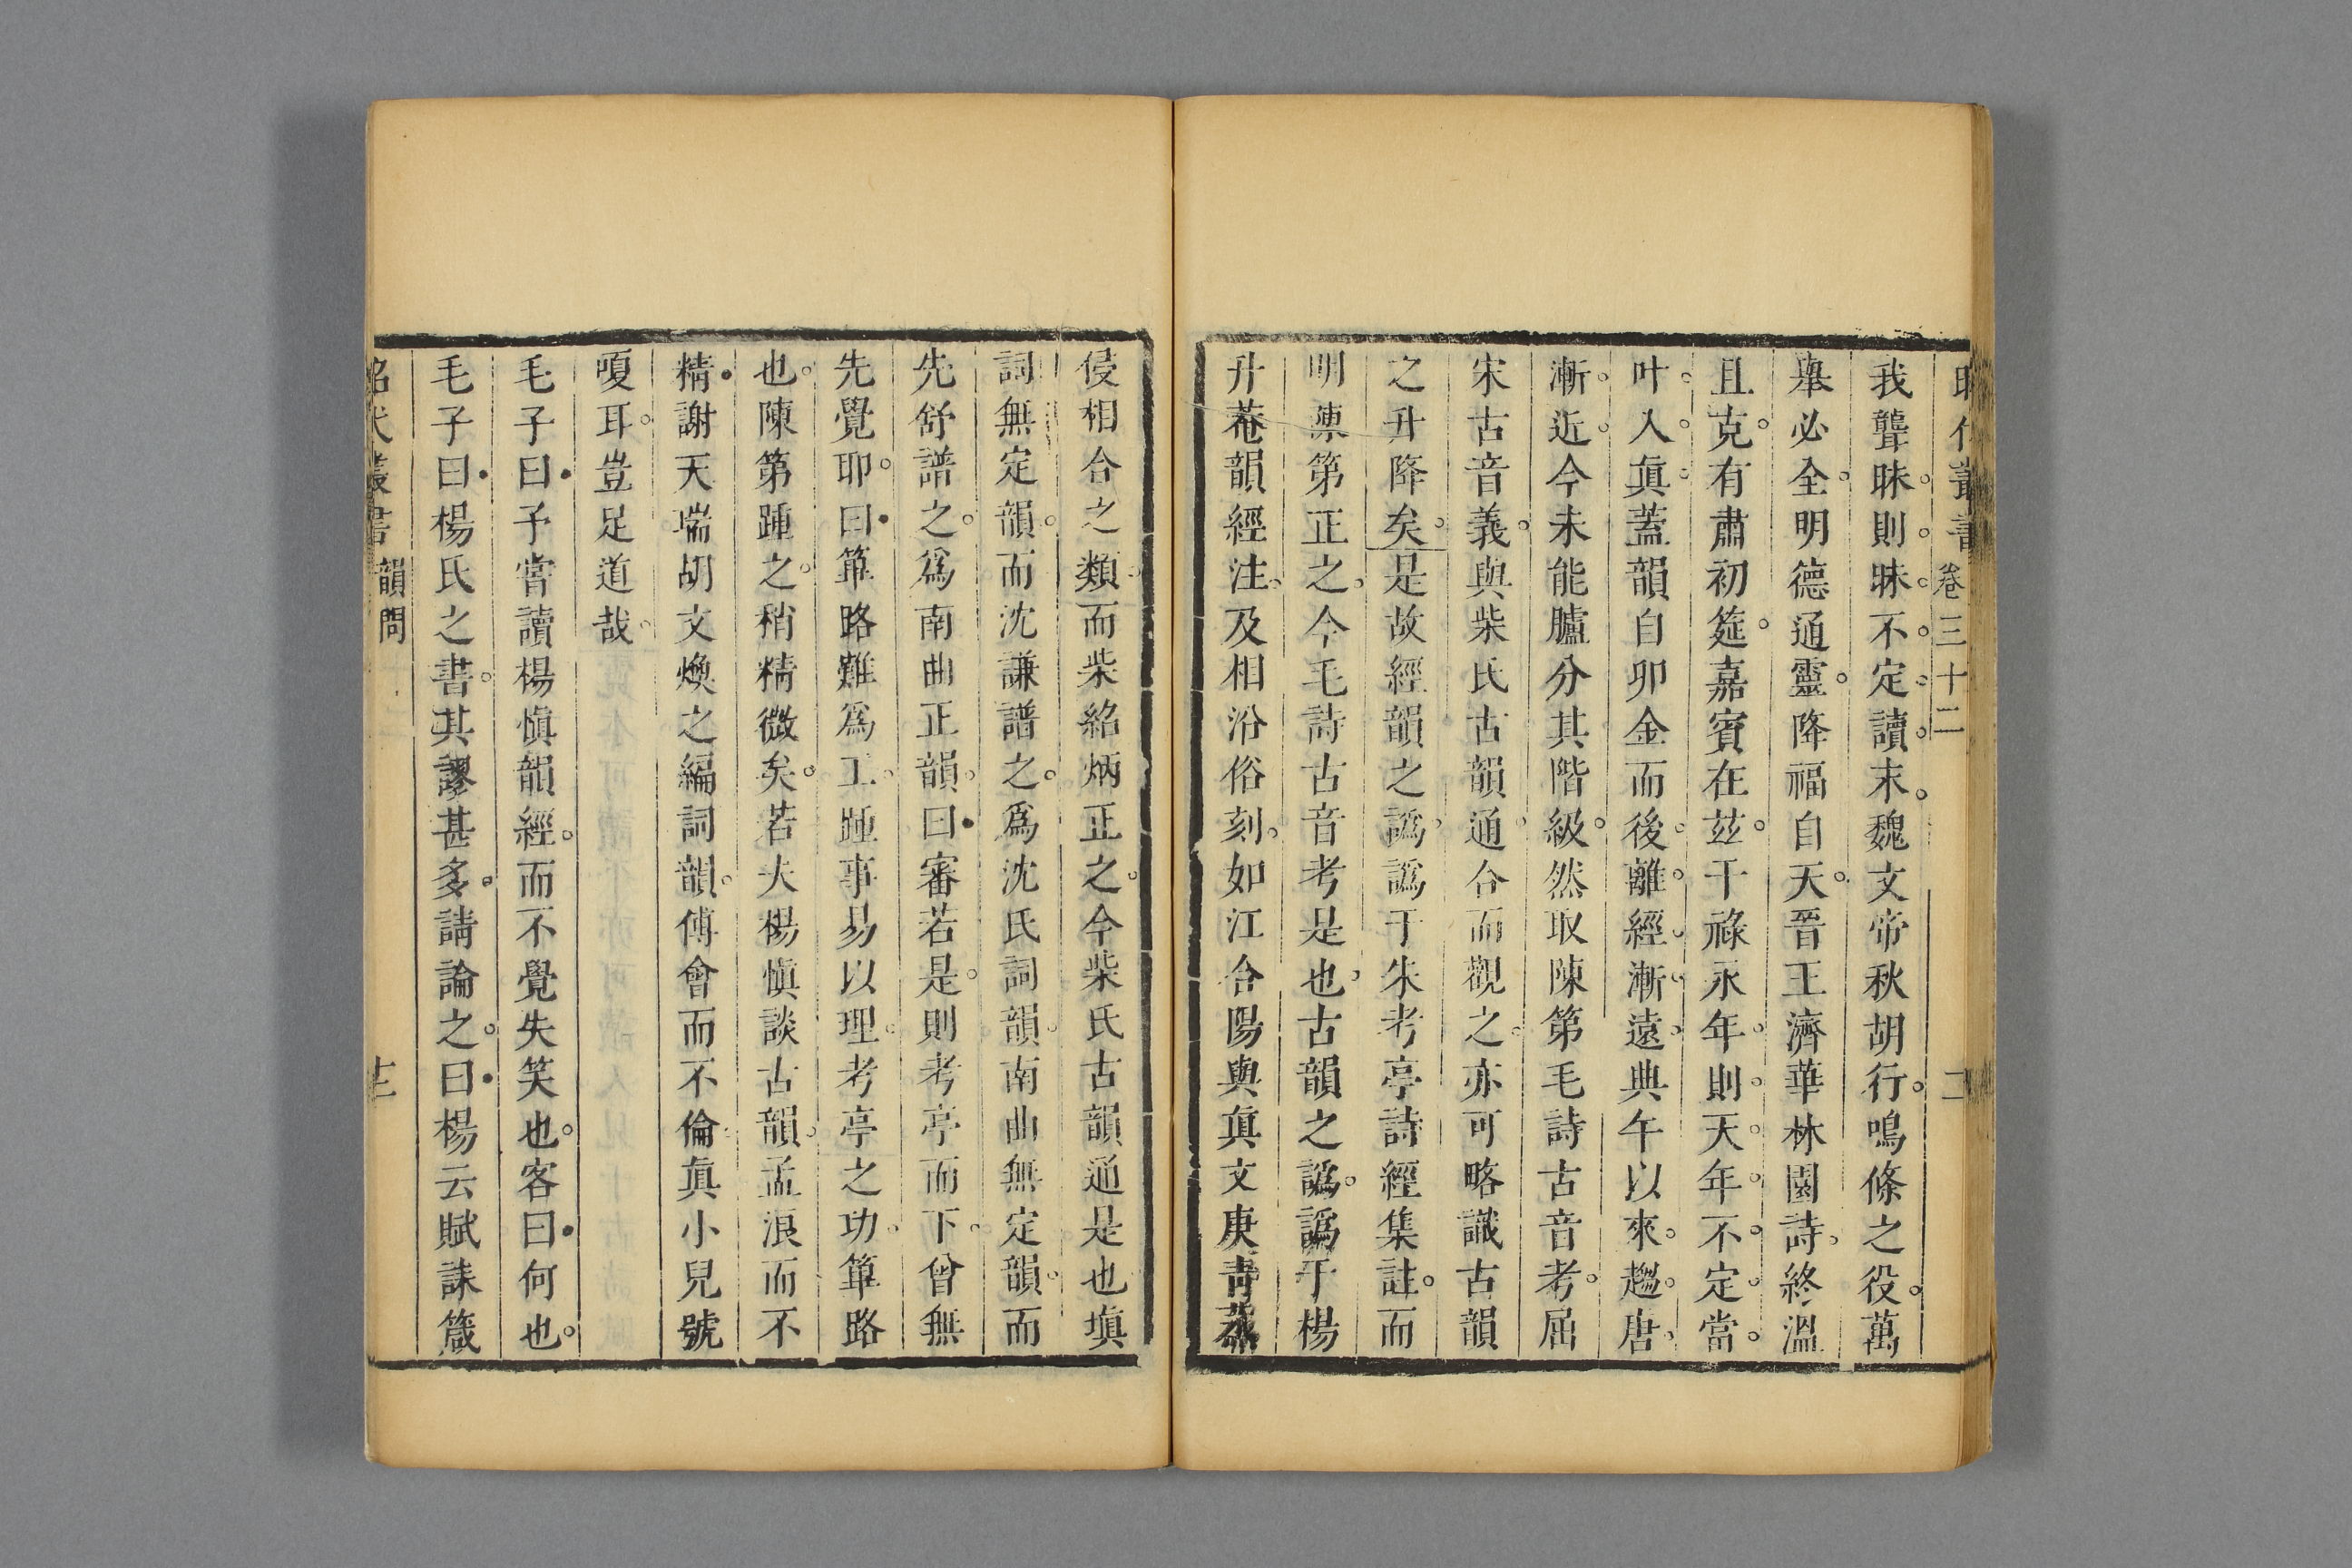 昭代叢書 卷三十二 二
我聾昧則昧不定讀末魏文帝秋胡行鳴條之役萬
舉必全明德通靈降福自天晉王濟華林園詩終溫
且克有肅初筵嘉賓在茲干祿永年則天年不定當
叶入眞蓋韻自卯金而後離經漸遠典午以來趨唐
漸近今未能臚分其階級然取陳第毛詩古音考屈
宋古音義與柴氏古韻通合而觀之亦可略識古韻
之升降矣是故經韻之譌譌于朱考亭詩經集註而
明陳第正之今毛詩古音考是也古韻之譌譌于楊
升菴韻經注及相沿俗刻如江合陽與眞文庚靑蒸
侵相合之類而柴紹炳正之今柴氏古韻通是也塡
詞無定韻而沈謙譜之爲沈氏詞韻南曲無定韻而
先舒譜之爲南曲正韻曰審若是則考亭而下曾無
先覺耶曰篳路難爲工踵事易以理考亭之功篳路
也陳第踵之稍精微矣若夫楊愼談古韻孟浪而不
精謝天瑞胡文煥之編詞韻傅會而不倫眞小兒號
嗄耳豈足道哉
毛子曰予嘗讀楊愼韻經而不覺失笑也客曰何也
毛子曰楊氏之書其謬甚多請論之曰楊云賦誄箴
昭代叢書 韻問 十三